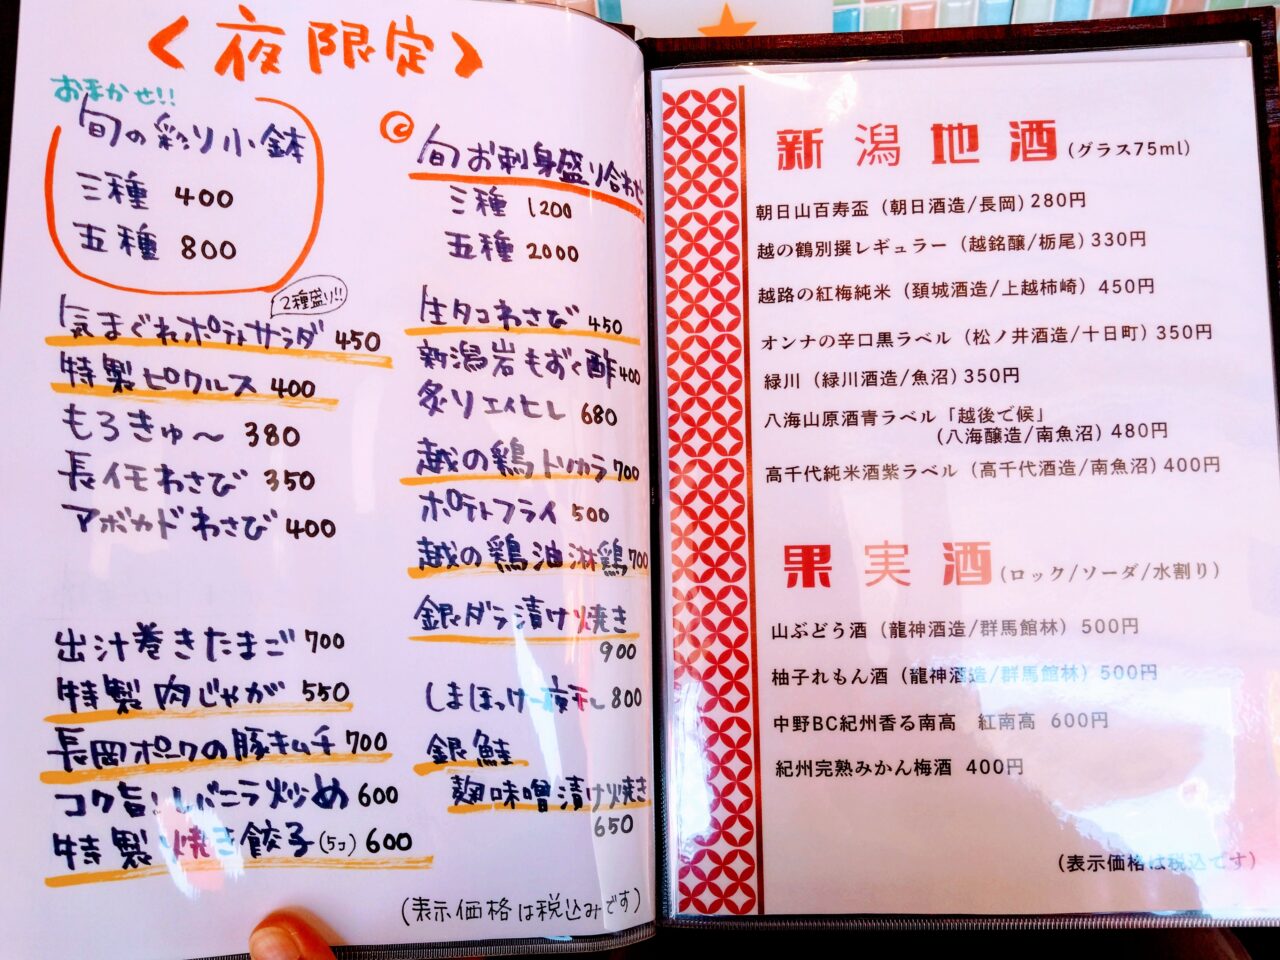 〈夜限定〉
おまかせ!!
旬の彩り小鉢
三種 400
五種 800
2種盛り!!
気まぐれポテトサラダ 450
特製ピクルス 400
もろきゅ〜 380
長イモわさび 350
アボカドわさび 400
出汁巻きたまご 700
特製肉じゃが 550
長岡ポークの豚キムチ 700
コク旨!レバニラ炒め 600
特製焼き餃子(5コ) 600
旬お刺身盛り合わせ
三種 1200
五種 2000
生タコわさび 450
新潟岩もずく酢 400
炙りエイヒレ 680
越の鶏トリカラ 700
ポテトフライ 500
越の鶏油淋鶏 700
銀ダラ漬け焼き
900
しまほっけ一夜干し 800
銀鮭
麹味噌漬け焼き
650
(表示価格は税込みです)
新潟地酒(グラス75ml)
朝日山百寿盃(朝日酒造/長岡)280円
越の鶴別撰レギュラー(越銘醸/栃尾)330円
越路の紅梅純米(頚城酒造/上越柿崎)450円
オンナの辛口黒ラベル(松ノ井酒造/十日町)350円
緑川(緑川酒造/魚沼)350円
八海山原酒青ラベル「越後で候」
(八海醸造/南魚沼)480円
高千代純米酒紫ラベル(高千代酒造/南魚沼)400円
果実酒(ロック/ソーダ/水割り)
山ぶどう酒(龍神酒造/群馬館林)500円
柚子れもん酒(龍神酒造/群馬館林)500円
中野BC紀州香る南高 紅南高 600円
紀州完熟みかん梅酒 400円
(表示価格は税込です)